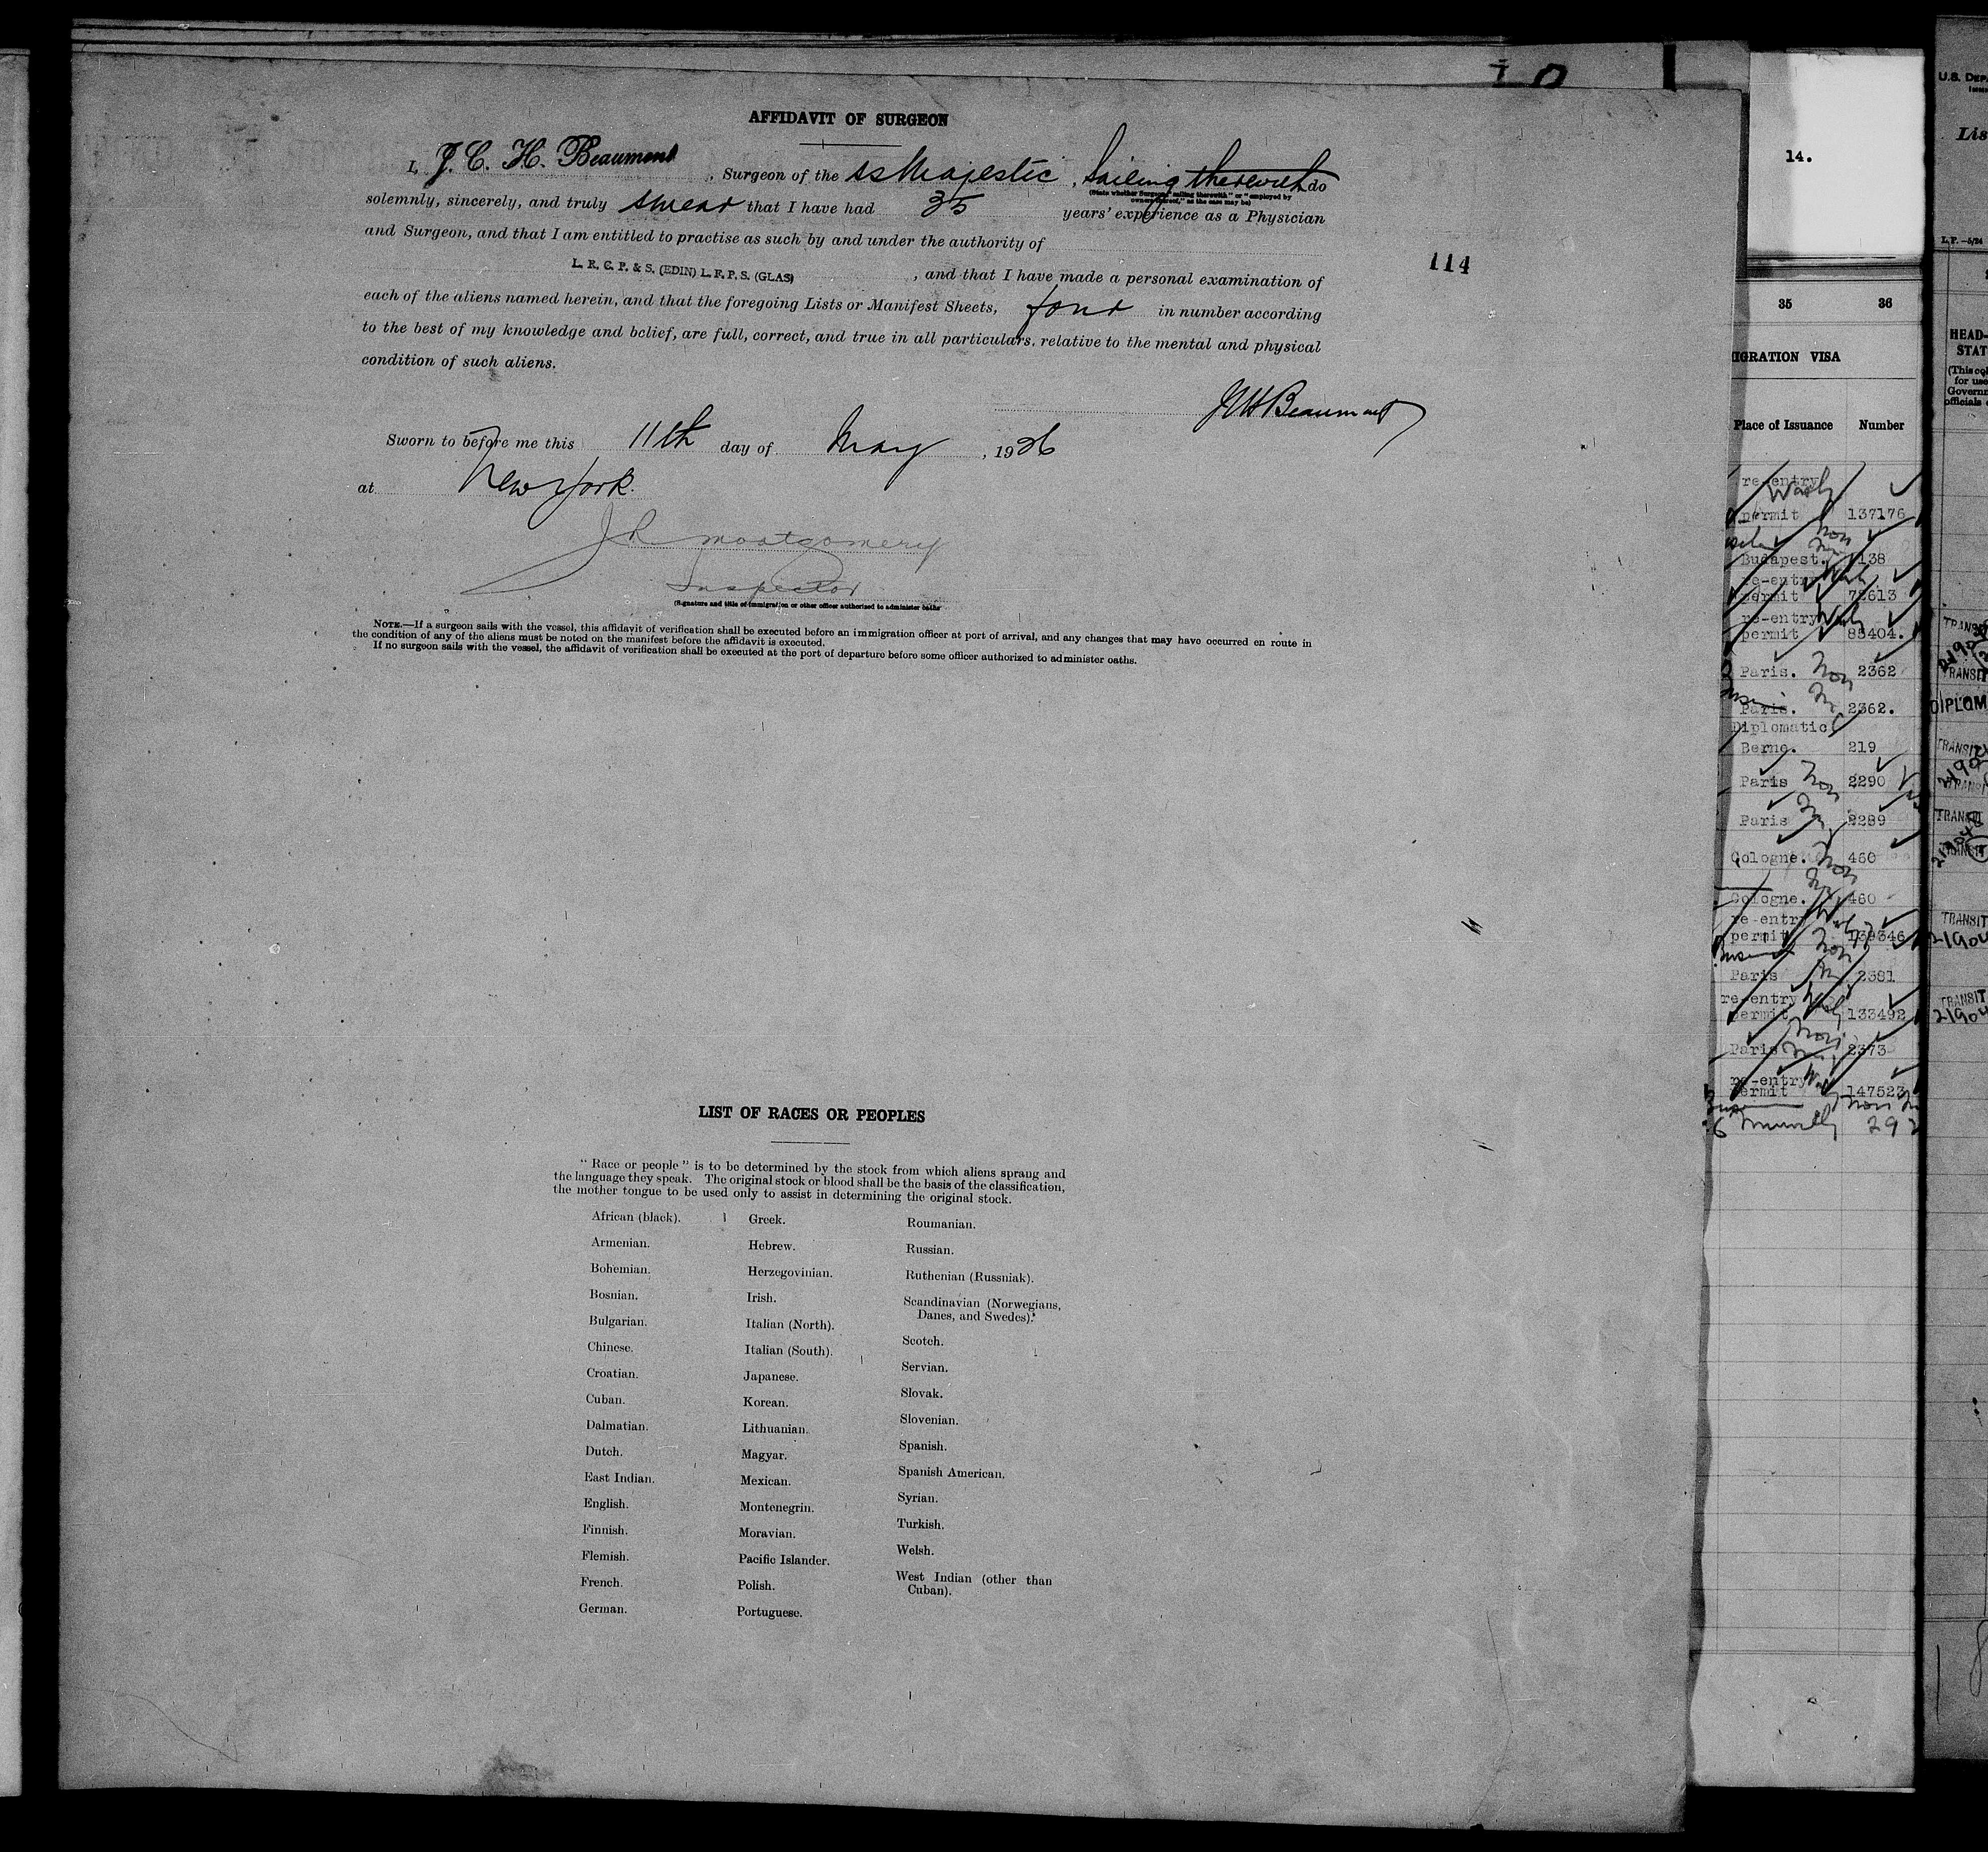 AFFIDAVIT OF SURGEON
I, J. C. H. Beaumont, Surgeon of the ss Majestic, Sailing therewith do
(State whether Surgeon "sailing therewith" or "employed by
owners thereof," as the case may be)
solemnly, sincerely, and truly swear that I have had 35 years' experience as a Physician
and Surgeon, and that I am entitled to practise as such by and under the authority of
L. R. C. P. & S. (EDIN) L. F. P. S. (GLAS), and that I have made a personal examination of
114
each of the aliens named herein, and that the foregoing Lists or Manifest Sheets, four in number according
to the best of my knowledge and belief, are full, correct, and true in all particulars, relative to the mental and physical
condition of such aliens.
JCHBeaumont
Sworn to before me this 11th day of May, 1926
at New York.
J R Montgomery
Inspector
(Signature and title of immigration or other officer authorized to administer oaths
NOTE.—If a surgeon sails with the vessel, this affidavit of verification shall be executed before an immigration officer at port of arrival, and any changes that may have occurred en route in
the condition of any of the aliens must be noted on the manifest before the affidavit is executed.
If no surgeon sails with the vessel, the affidavit of verification shall be executed at the port of departure before some officer authorized to administer oaths.
LIST OF RACES OR PEOPLES
"Race or people" is to be determined by the stock from which aliens sprang and
the language they speak. The original stock or blood shall be the basis of the classification,
the mother tongue to be used only to assist in determining the original stock.
African (black).
Armenian.
Bohemian.
Bosnian.
Bulgarian.
Chinese.
Croatian.
Cuban.
Dalmatian.
Dutch.
East Indian.
English.
Finnish.
Flemish.
French.
German.
Greek.
Hebrew.
Herzegovinian.
Irish.
Italian (North).
Italian (South).
Japanese.
Korean.
Lithuanian.
Magyar.
Mexican.
Montenegrin.
Moravian.
Pacific Islander.
Polish.
Portuguese.
Roumanian.
Russian.
Ruthenian (Russniak).
Scandinavian (Norwegians,
Danes, and Swedes).
Scotch.
Servian.
Slovak.
Slovenian.
Spanish.
Spanish American.
Syrian.
Turkish.
Welsh.
West Indian (other than
Cuban).
14.
35 36
IGRATION VISA
Place of Issuance Number
re-entry Wash
permit 137176
Budapest. 1138
re-entry Wash
permit 72613
re-entry Wash
permit 85404.
Paris. Non 2362
Paris. 2362.
Diplomatic
Berne. 219
Paris Non 2290
Paris 2289
Cologne. Non 460
Cologne. 460
re-entry
permit 139346
Paris 2381
re-entry
permit 133492
Paris 2373
re-entry
permit 147523
292
U.S. DEP
Lis
L.P.—5/24
HEAD-
STAT
(This col
for use
Governm
officials
TRANS
TRANSI
DIPLOM
TRANSIT
TRANSI
TRANSI
TRANSIT
21904
TRANSIT
21904